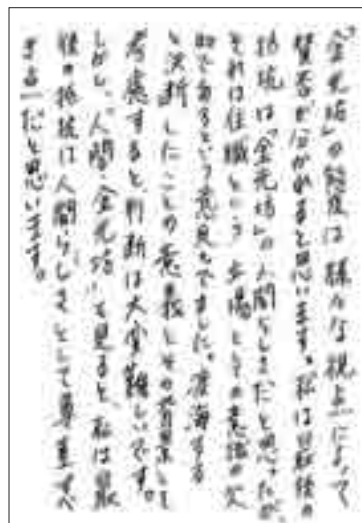 「金光坊」の態度は様々な視点によって
賛否が分かれると思います。私は最後の
抵抗は「金光坊」の人間らしさだと思ったが、
それは住職という立場としての意識の欠
如であるという意見もでました。渡海する
と決断したことの意義とその背景にして
考慮すると、判断は大変難しいです。
しかし、「人間・金光坊」を見ると、私は最
後の抵抗は人間らしさとして尊重すべ
き点だと思います。